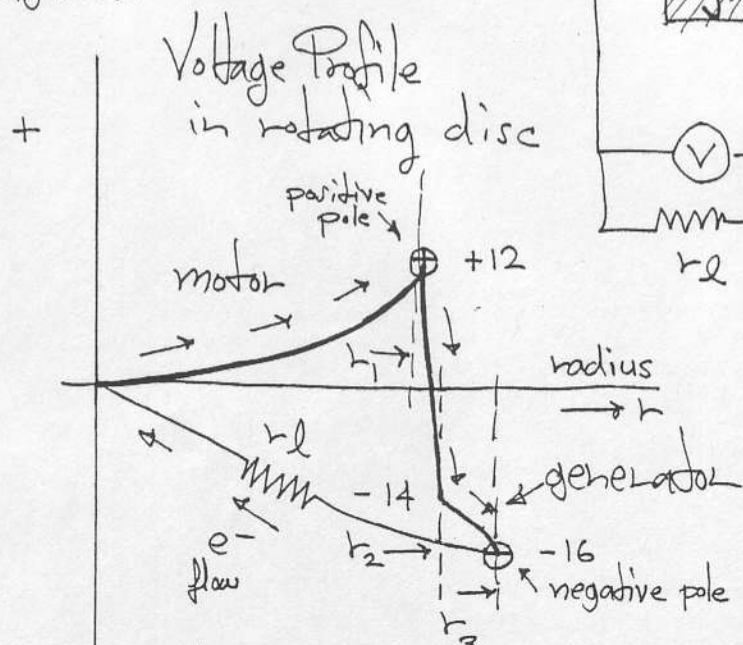 Voltage Profile
in rotating disc
+
V
rl
positive
pole
+12
motor
r1
radius
r
rl
-14
generator
e-
flow
r2
-16
negative pole
r3